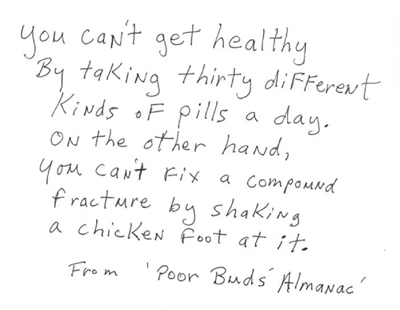 you can't get healthy
By taking thirty different
kinds of pills a day.
On the other hand,
you can't fix a compound
fracture by shaking
a chicken foot at it.
From 'Poor Buds' Almanac'